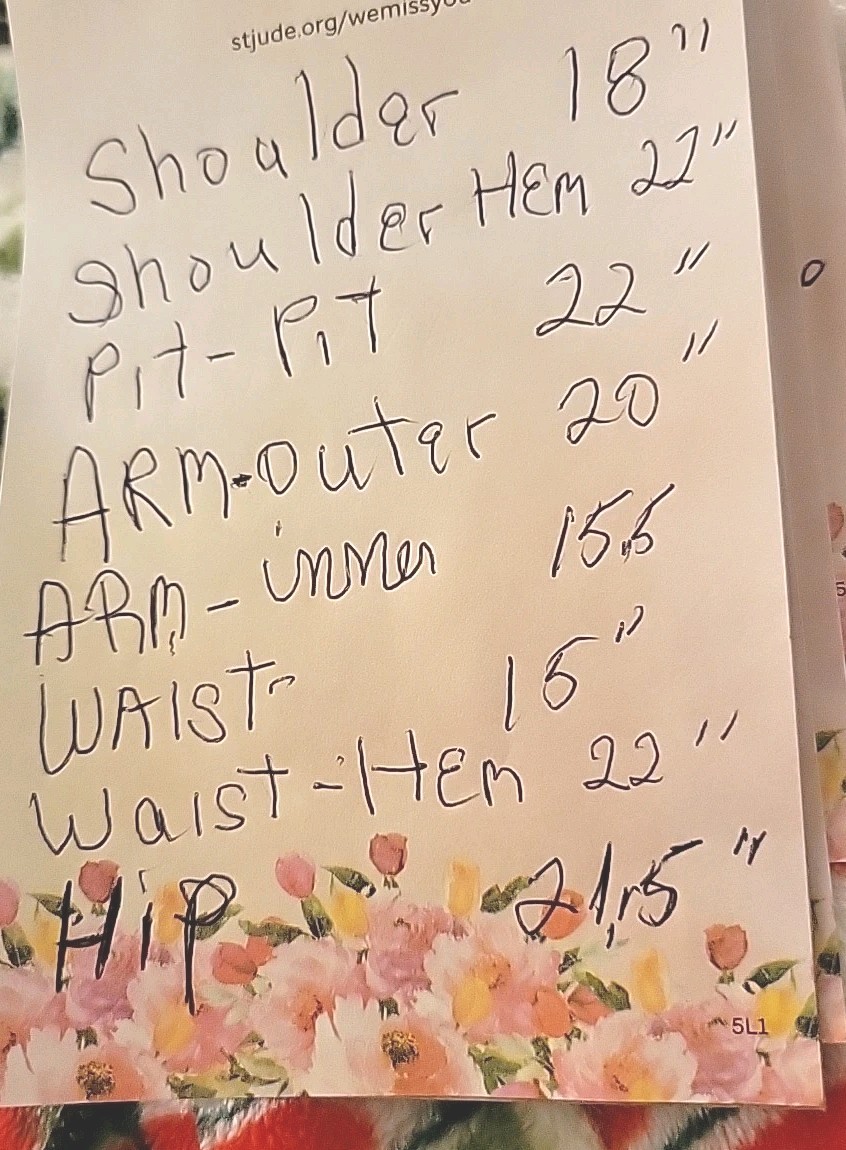 stjude.org/wemissyou
Shoulder 18"
Shoulder HEm 22"
Pit-Pit 22"
ARM-outer 20"
ARM-inner 15.5
WAIST- 16"
Waist-HEm 22"
Hip 21.5"
5L1